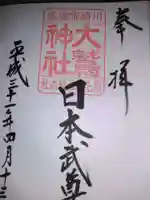 奉拝
大鷲
神社
日本武尊
平成三十一年四月十三